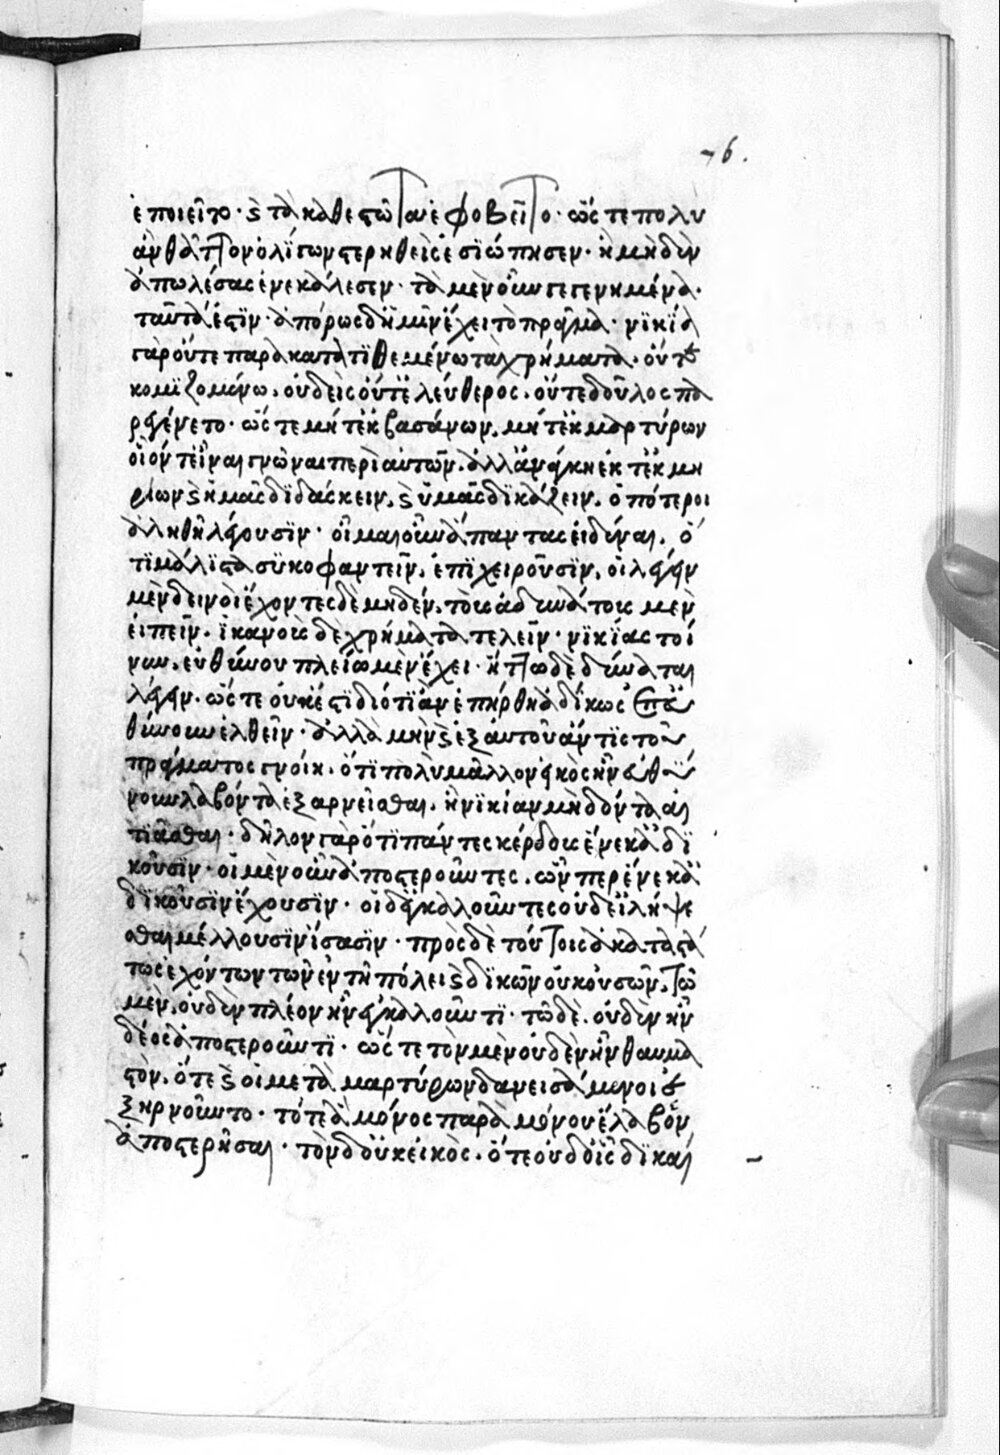 76.
ἐποιεῖτο· καὶ τὰ καθεστῶτα ἐφοβεῖτο· ὥς τε πολὺ
ἂν θᾶττον ὀλίγων στερηθεὶς ἐσϊώπησεν· ἢ μηδὲν
ἀπολέσας ἐνεκάλεσεν· τὰ μὲν οὖν γεγενημένα·
ταῦτα ἐστϊν· ἀπόρως δ ἡμῖν ἔχει τὸ πρᾶγμα· νϊκίᾳ
γὰρ οὔτε παρακατατϊθεμένω τὰ χρήματα· οὔτε
κομϊζομένω, οὐδεὶς οὔτ ἐλεύθερος, οὔτε δοῦλος πα
ρεγένετο· ὥς τε μήτ ἐκ βασάνων, μήτ ἐκ μαρτύρων
οἷόν τ εἶναι γνῶναι περὶ αὐτῶν· ἀλλ ἀνάγκη ἐκ τεκμη
ρίων καὶ ἡμᾶς δϊδάσκειν, καὶ ὑμᾶς δϊκάζειν, ὁπότεροι
ἀληθῆ λέγουσϊν· οἶμαι οὖν ἅπαντας εἰδέναι, ὅ
τϊ μάλϊστα σϋκοφαντεῖν, ἐπϊχειροῦσϊν, οἱ λέγειν
μὲν δεινοὶ ἔχοντες δὲ μηδέν, τοὺς ἀδυνάτους μὲν
εἰπεῖν, ἱκανοὺς δὲ χρήματα τελεῖν· νϊκίας τοί
νυν, εὐθύνου πλείω μὲν ἔχει· ἧττω δὲ δύναται
λέγειν· ὥς τε οὐκ ἔστϊ διότϊ ἂν ἐπήρθη ἀδίκως ἐπ εὐ
θύνουν ἐλθεῖν· ἀλλὰ μὴν καὶ ἐξ αὐτοῦ ἄν τϊς τοῦ
πράγματος γνοίη, ὅτϊ πολὺ μᾶλλον εἰκὸς ἦν εὐθύ
νουν λαβόντα ἐξαρνεῖσθαι, ἢ νϊκίαν μὴ δόντα αἰ
τϊᾶσθαι· δῆλον γὰρ ὅτϊ πάντες κέρδους ἕνεκα ἀδϊ
κοῦσϊν· οἱ μὲν οὖν ἀποστεροῦντες, ὧν περ ἕνεκα ἀ
δϊκοῦσϊν ἔχουσϊν· οἱ δ ἐγκαλοῦντες οὐδ εἰ λήψε
σθαι μέλλουσϊν ἴσασϊν· πρὸς δὲ τούτοις ἀκαταστά
τως ἐχόντων τῶν ἐν τῆ πόλει καὶ δϊκῶν οὐκ οὐσῶν, τῶ
μὲν, οὐδὲν πλέον ἦν ἐγκαλοῦντϊ· τῶ δὲ, οὐδὲν ἦν
δέος ἀποστεροῦντϊ· ὥς τε τὸν μὲν οὐδὲν ἦν θαυμα
στὸν, ὅτε καὶ οἱ μετὰ μαρτύρων δανεισάμενοι ἐ
ξηρνοῦντο· τότε ἃ μόνος παρὰ μόνου ἔλαβεν,
ἀποστερῆσαι· τὸν δ οὐκ εἰκὸς, ὅτε οὐδ οἷς δϊκαί